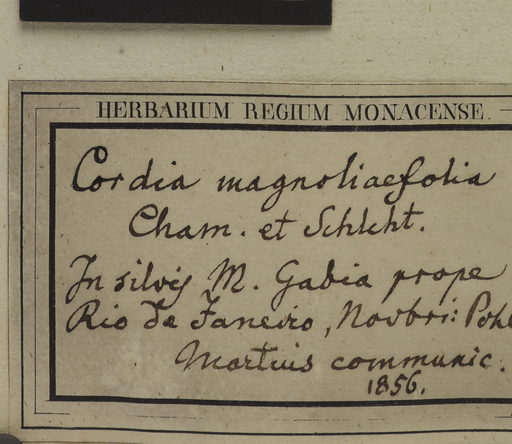 HERBARIUM REGIUM MONACENSE.
Cordia magnoliaefolia
Cham. et Schlcht.
In silvis M. Gabia prope
Rio de Janeiro, Novbri: Pohl
Martius communic.
1856.